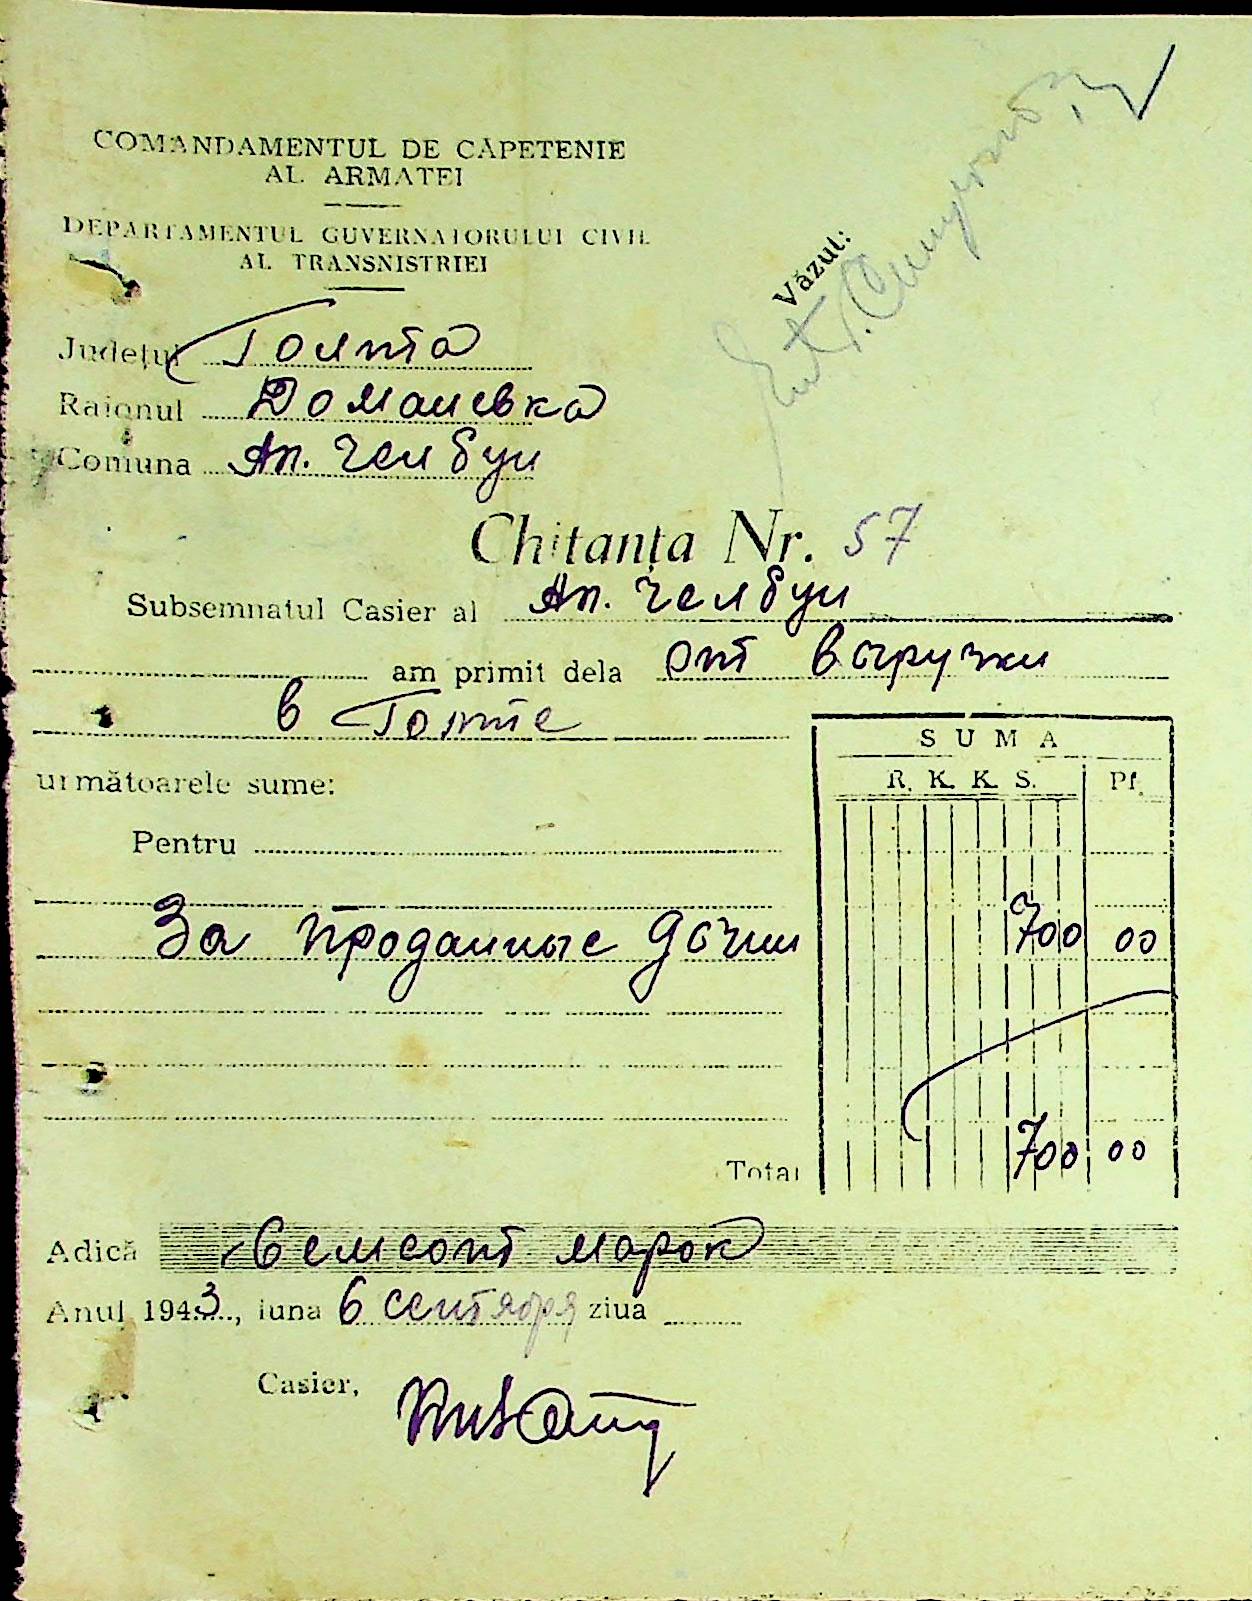 COMANDAMENTUL DE CAPETENIE
AL ARMATEI
DEPARTAMENTUL GUVERNATORULUI CIVIL
AL TRANSNISTRIEI
Văzul:
Județul Голта
Raionul Доманевка
Comuna Ак. Челбур
Chitanța Nr. 57
Subsemnatul Casier al
am primit dela От выручки
в Голте
SUMA
R. K. K. S. Pf.
următoarele sume:
Pentru
За проданные дыни 700 00
Total 700 00
Adică Семсот марок
Anul 1943, luna 6 сентября ziua
Casier,